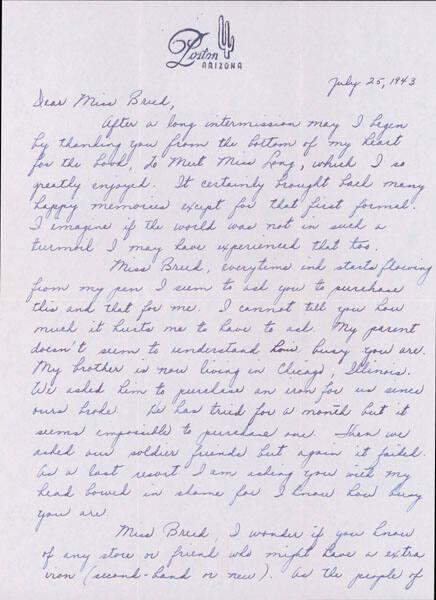 Poston
ARIZONA
July 25, 1943
Dear Miss Breed,
After a long intermission may I begin
by thanking you from the bottom of my heart
for the book, to Meet Miss Long, which I so
greatly enjoyed. It certainly brought back many
happy memories except for that first formal.
I imagine if the world was not in such a
turmoil I may have experienced that too.
Miss Breed, everytime ink starts flowing
from my pen I seem to ask you to purchase
this and that for me. I cannot tell you how
much it hurts me to have to ask. My parent
doesn't seem to understand how busy you are.
My brother is now living in Chicago, Illinois.
We asked him to purchase an iron for us since
ours broke. He has tried for a month but it
seems impossible to purchase one. Then we
asked our soldier friends but again it failed.
As a last resort I am asking you with my
head bowed in shame for I know how busy
you are.
Miss Breed, I wonder if you know
of any store or friend who might have a extra
iron (second-hand or new). As the people of